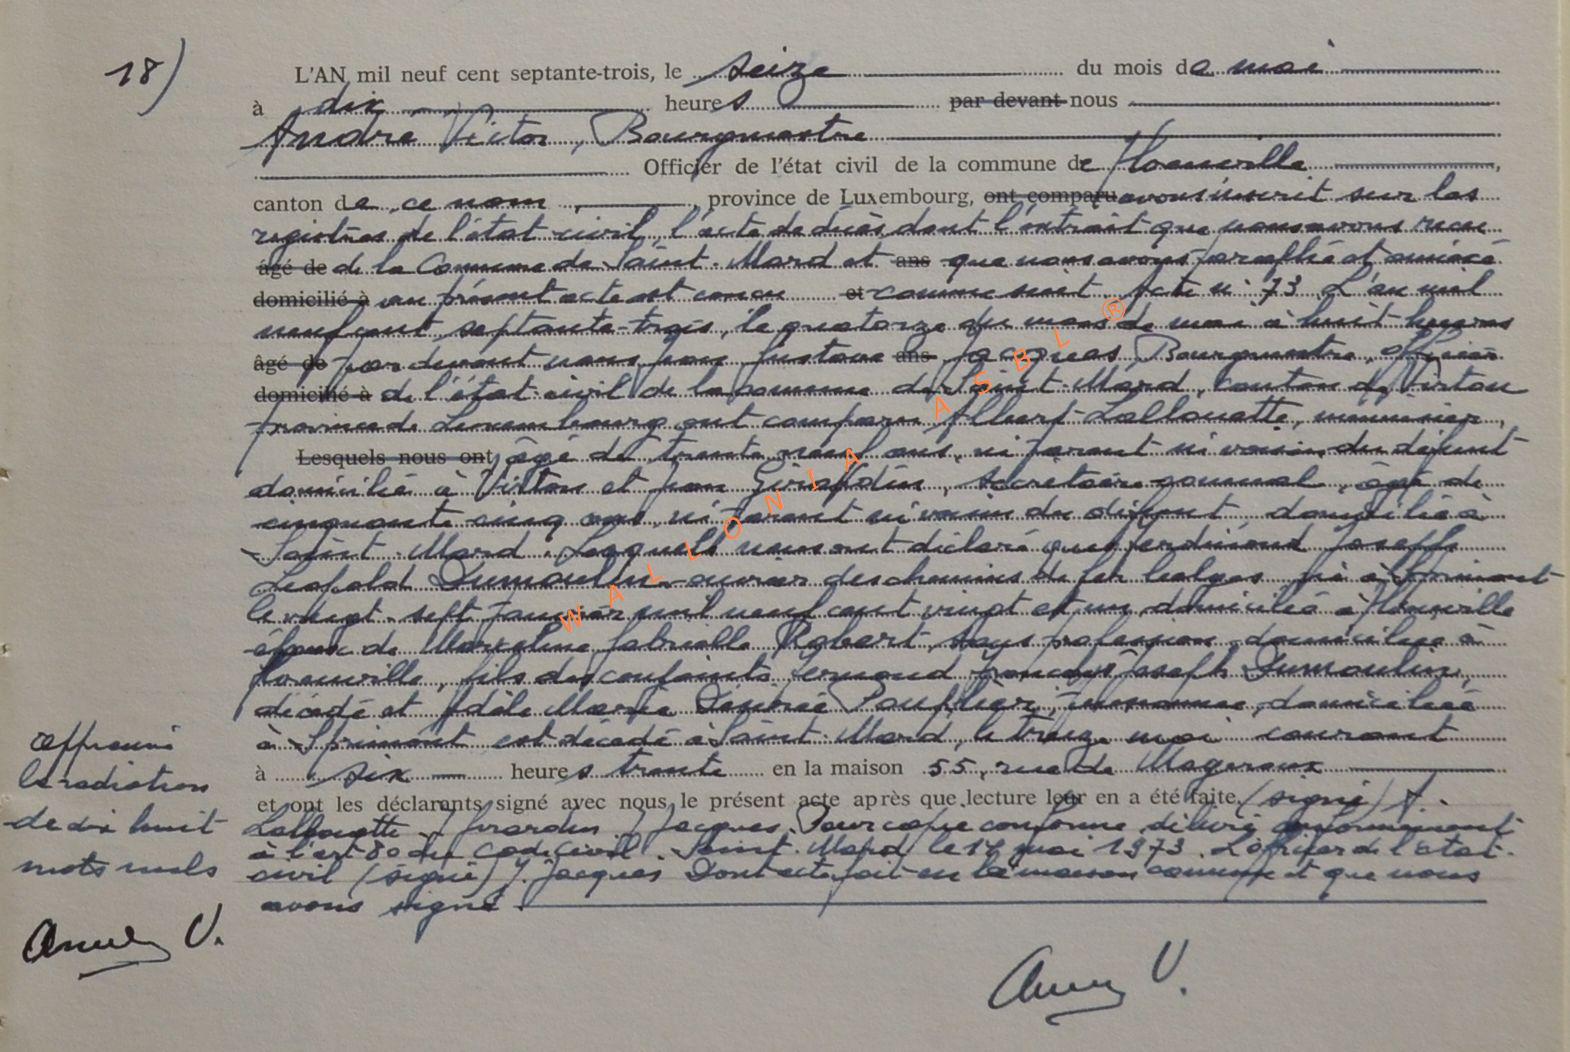 18)
L'AN mil neuf cent septante-trois, le seize du mois de mai
à dix heures par devant nous
André Victor, Bourgmestre
Officier de l'état civil de la commune de Florenville,
canton de ce nom, province de Luxembourg, ont comparu avons inscrit sur les
registres de l'état civil, l'acte de décès dont l'extrait que nous avons recu
âgé de de la Commune de Saint-Mard et ans que nous avons paraphé et annexé
domicilié à au présent acte est concu et comme suit Acte n° 73 L'an mil
neuf cent septante-trois, le quatorze du mois de mai à huit heures
âgé de par devant nous Gustave ans Jacques Bourgmestre, officier
domicilié à de l'état civil de la commune de Saint-Mard, canton de Virton
province de Luxembourg ont comparu Albert Lallouette, menuisier,
Lesquels nous ont âgé de trente neuf ans, ni parent ni voisin du défunt
domicilié à Virton et Jean Girardin, secrétaire communal, âgé de
cinquante cinq ans, ni parent ni voisin du défunt, domicilié à
Saint-Mard. Lesquels nous ont déclaré que Ferdinand Joseph
Léopold Dumoulin ouvrier des chemins de fer belges né à Sprimont
le vingt-sept Janvier mil neuf cent vingt et un, domicilié à Florenville
époux de Marceline Gabrielle Robert, sans profession, domiciliée à
Florenville, fils des conjoints Fernand François Joseph Dumoulin,
décédé et Adèle Marie Désirée ménagère, domiciliée
à Sprimont est décédé à Saint-Mard, le treize mai courant
à six heures trente en la maison 55, rue de Mageroux
et ont les déclarants signé avec nous le présent acte après que lecture leur en a été faite. (signé) A.
Lallouette J Girardin J Jacques. Pour copie conforme délivré conformément
à l'art 80 du code civil. Saint-Mard le 14 mai 1973. L'officier de l'état-
civil (signé) J. Jacques Dont acte fait en la maison commune et que nous
avons signé.
Approuvé
la radiation
de dix huit
mots nuls
André V.
André V.
WALLONIA ASBL ®